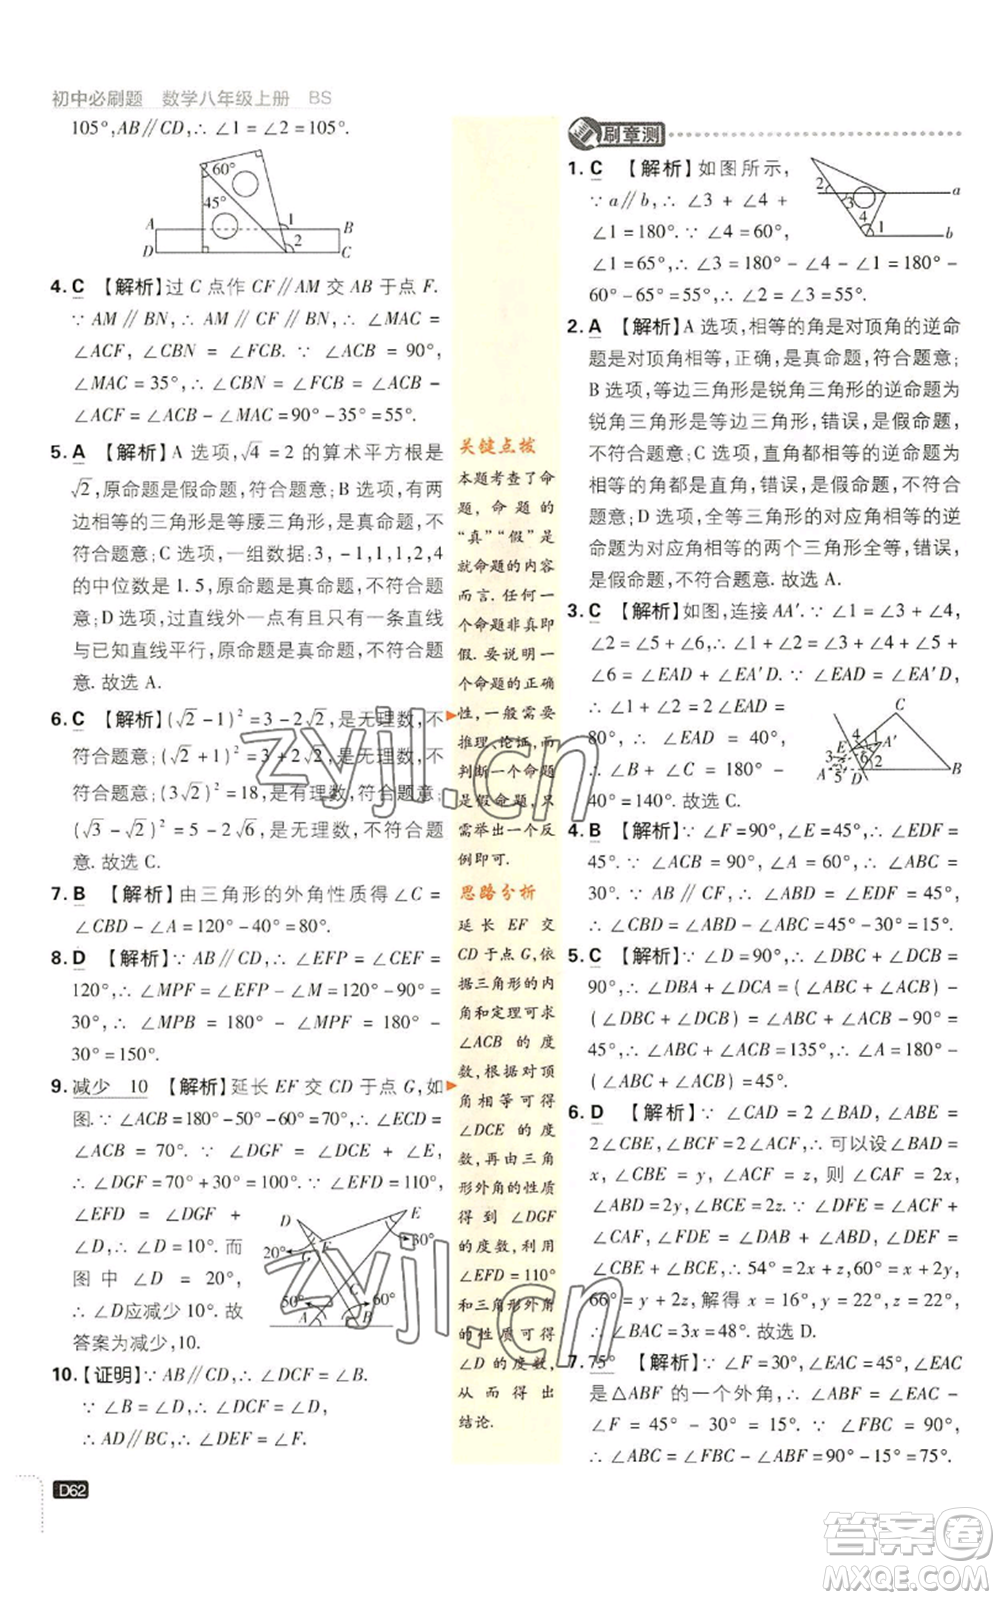 初中必刷题 数学八年级上册 BS
105°,AB∥CD,∴ ∠1=∠2=105°.
60°
45°
A
B
D
C
1
2
4. C 【解析】过 C 点作 CF∥AM 交 AB 于点 F.
∵ AM∥BN,∴ AM∥CF∥BN,∴ ∠MAC=
∠ACF,∠CBN=∠FCB. ∵ ∠ACB=90°,
∠MAC=35°,∴ ∠CBN=∠FCB=∠ACB-
∠ACF=∠ACB-∠MAC=90°-35°=55°.
5. A 【解析】A 选项,√4=2 的算术平方根是
√2,原命题是假命题,符合题意;B 选项,有两
边相等的三角形是等腰三角形,是真命题,不
符合题意;C 选项,一组数据:3,-1,1,1,2,4
的中位数是 1.5,原命题是真命题,不符合题
意;D 选项,过直线外一点有且只有一条直线
与已知直线平行,原命题是真命题,不符合题
意. 故选 A.
6. C 【解析】(√2-1)²=3-2√2,是无理数,不
符合题意;(√2+1)²=3+2√2,是无理数,不
符合题意;(3√2)²=18,是有理数,符合题意;
(√3-√2)²=5-2√6,是无理数,不符合题
意. 故选 C.
7. B 【解析】由三角形的外角性质得∠C=
∠CBD-∠A=120°-40°=80°.
8. D 【解析】∵ AB∥CD,∴ ∠EFP=∠CEF=
120°,∴ ∠MPF=∠EFP-∠M=120°-90°=
30°,∴ ∠MPB=180°-∠MPF=180°-
30°=150°.
9. 减少 10 【解析】延长 EF 交 CD 于点 G,如
图. ∵ ∠ACB=180°-50°-60°=70°,∴ ∠ECD=
∠ACB=70°. ∵ ∠DGF=∠DCE+∠E,
∴ ∠DGF=70°+30°=100°. ∵ ∠EFD=110°,
∠EFD=∠DGF+
∠D,∴ ∠D=10°. 而
图中∠D=20°,
∴ ∠D应减少 10°. 故
答案为减少,10.
D
E
F
G
C
A
B
20°
30°
50°
60°
10. 【证明】∵ AB∥CD,∴ ∠DCF=∠B.
∵ ∠B=∠D,∴ ∠DCF=∠D,
∴ AD∥BC,∴ ∠DEF=∠F.
D62
关键点拨
本题考查了命
题,命题的
“真”“假”是
就命题的内容
而言. 任何一
个命题非真即
假. 要说明一
个命题的正确
性,一般需要
推理、论证,而
判断一个命题
是假命题,只
需举出一个反
例即可.
思路分析
延长 EF 交
CD 于点 G,依
据三角形的内
角和定理可求
∠ACB 的度
数,根据对顶
角相等可得
∠DCE 的度
数,再由三角
形外角的性质
得到∠DGF
的度数,利用
∠EFD=110°
和三角形外角
的性质可得
∠D 的度数,
从而得出
结论.
刷章测
1. C 【解析】如图所示,
∵ a∥b,∴ ∠3+∠4+
∠1=180°. ∵ ∠4=60°,
∠1=65°,∴ ∠2=∠3=
180°-∠4-∠1=180°-
60°-65°=55°,故选 C.
2
3
4
1
a
b
2. A 【解析】A 选项,相等的角是对顶角的逆命
题是对顶角相等,正确,是真命题,符合题意;
B 选项,等边三角形是锐角三角形的逆命题为
锐角三角形是等边三角形,错误,是假命题,
不符合题意;C 选项,直角都相等的逆命题为
相等的角都是直角,错误,是假命题,不符合
题意;D 选项,全等三角形的对应角相等的逆
命题为对应角相等的两个三角形全等,错误,
是假命题,不符合题意. 故选 A.
3. C 【解析】如图,连接 AA′. ∵ ∠1=∠3+∠4,
∠2=∠5+∠6,∴ ∠1+∠2=∠3+∠4+∠5+
∠6=∠EAD+∠EA′D. ∵ ∠EAD=∠EA′D,
∴ ∠1+∠2=2∠EAD=
80°,∴ ∠EAD=40°,
∴ ∠B+∠C=180°-
40°=140°. 故选 C.
C
A′
E
A
D
B
4
1
3
5
6
2
4. B 【解析】∵ ∠F=90°,∠E=45°,∴ ∠EDF=
45°. ∵ ∠ACB=90°,∠BAC=60°,∴ ∠ABC=
30°. ∵ AB∥CF,∴ ∠ABD=∠EDF=45°,
∴ ∠CBD=∠ABD-∠ABC=45°-30°=15°.
5. C 【解析】∵ ∠D=90°,∴ ∠DBC+∠DCB=
90°,∴ ∠DBA+∠DCA=(∠ABC+∠ACB)-
(∠DBC+∠DCB)=∠ABC+∠ACB-90°=
45°,∴ ∠ABC+∠ACB=135°,∴ ∠A=180°-
(∠ABC+∠ACB)=45°.
6. D 【解析】∵ ∠CAD=2∠BAD,∠ABE=
2∠CBE,∠BCF=2∠ACF,∴ 可以设∠BAD=
x,∠CBE=y,∠ACF=z,则∠CAF=2x,
∠ABD=2y,∠BCE=2z. ∵ ∠DFE=∠CAF+
∠ACF,∠FDE=∠BAD+∠ABD,∠DEF=
∠CBE+∠BCE,∴ 54°=2x+z,60°=x+2y,
66°=y+2z,解得 x=16°,y=22°,z=22°,
∴ ∠BAC=3x=48°. 故选 D.
7. 75° 【解析】∵ ∠F=30°,∠EAC=45°,∠EAC
是△ABF 的一个外角,∴ ∠ABF=∠EAC-
∠F=45°-30°=15°. ∵ ∠FBC=90°,
∴ ∠ABC=∠FBC-∠ABF=90°-15°=75°.
zyjl.cn
zyjl.cn
答案卷
MXQE.COM